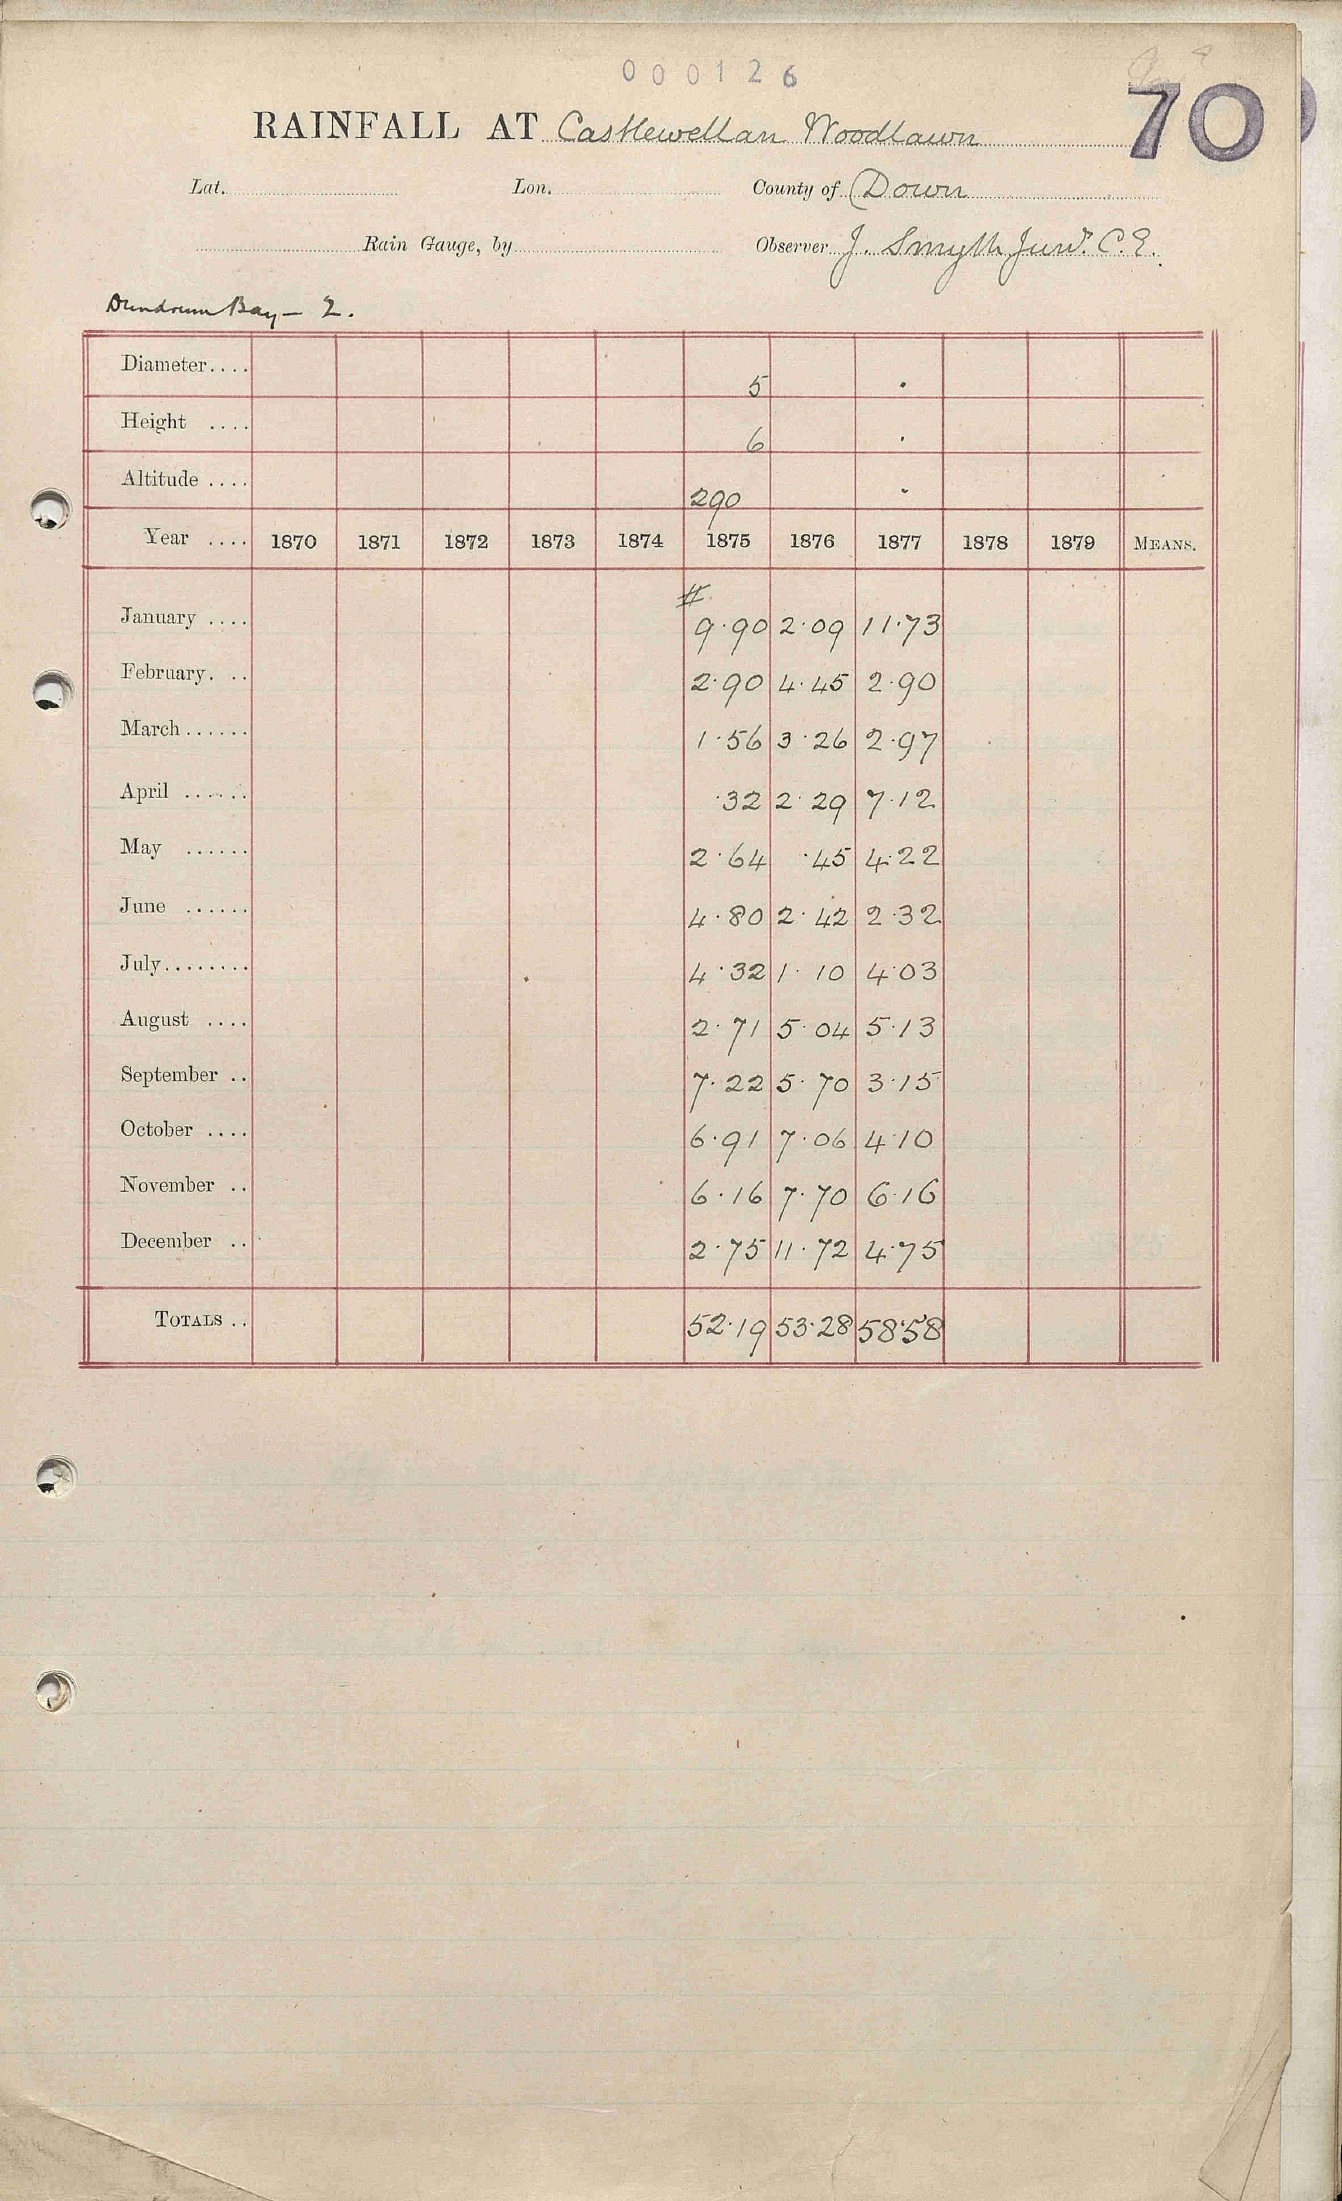 000126
70
RAINFALL AT Castlewellan Woodlawn
Lat. Lon. County of Down
Rain Gauge, by Observer J. Smyth Junr. C.E.
Dundrum Bay — 2.
Diameter.... 5 .
Height .... 6 .
Altitude .... 290 .
Year .... 1870 1871 1872 1873 1874 1875 1876 1877 1878 1879 MEANS.
#
January .... 9.90 2.09 11.73
February. .. 2.90 4.45 2.90
March...... 1.56 3.26 2.97
April ...... .32 2.29 7.12
May ...... 2.64 .45 4.22
June ...... 4.80 2.42 2.32
July........ 4.32 1.10 4.03
August .... 2.71 5.04 5.13
September .. 7.22 5.70 3.15
October .... 6.91 7.06 4.10
November .. 6.16 7.70 6.16
December .. 2.75 11.72 4.75
TOTALS .. 52.19 53.28 58.58